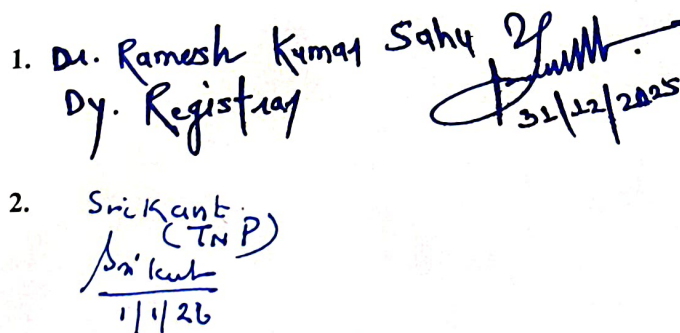 1. Dr. Ramesh Kumar Sahu
Dy. Registrar
31/12/2025
2. Srikant
(TNP)
Srikant
1/1/26